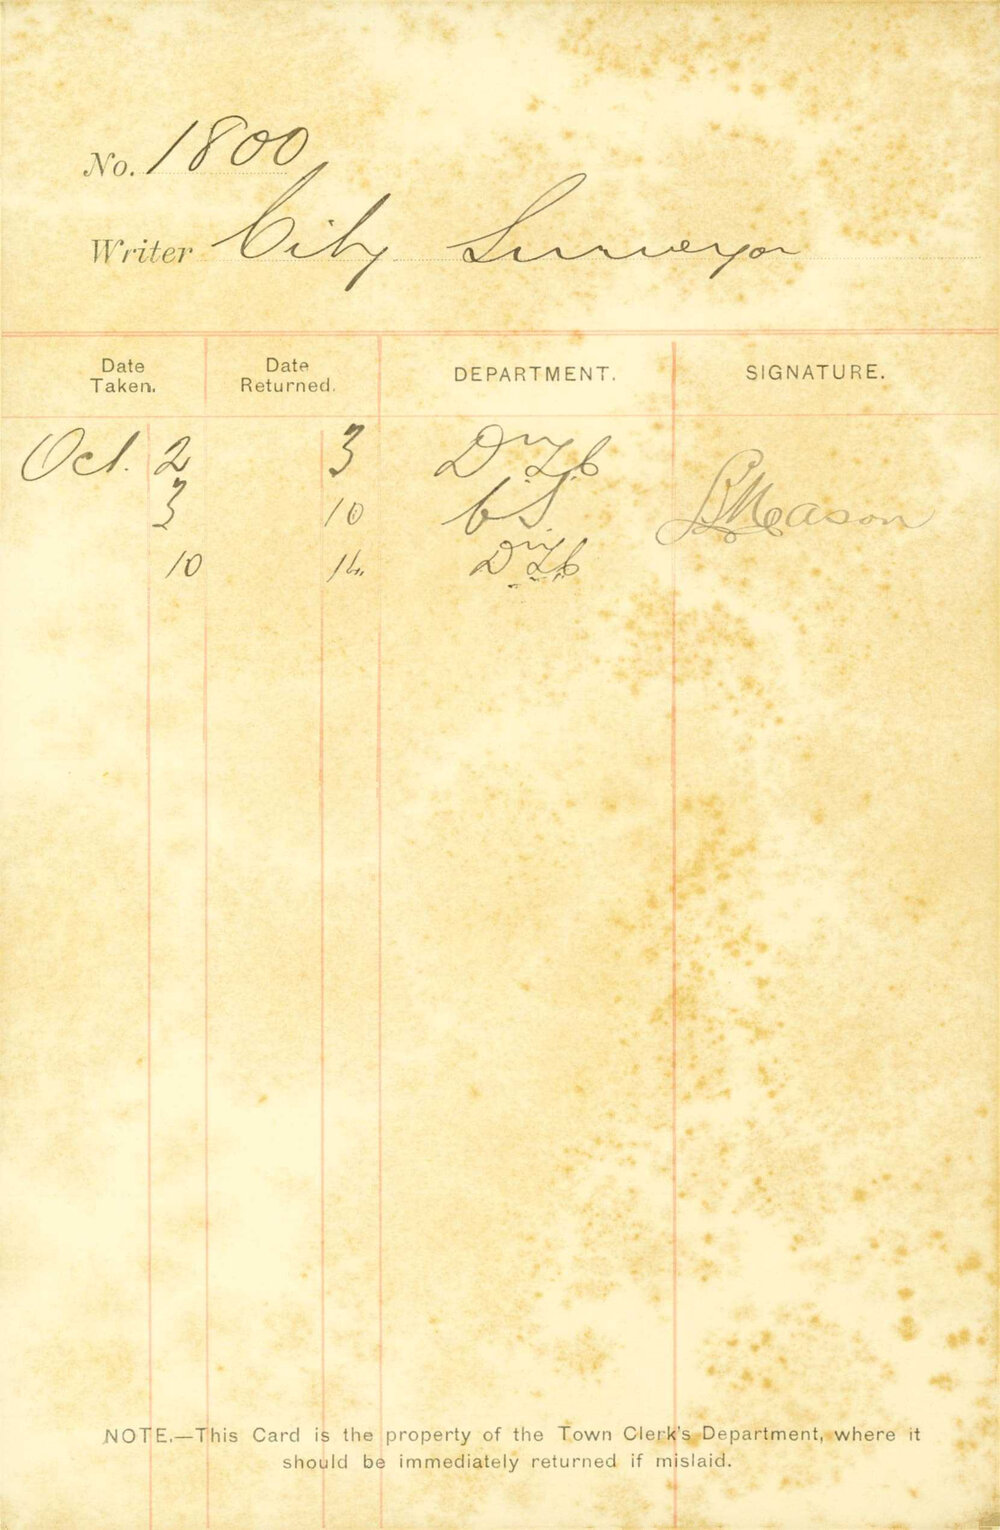 No. 1800
Writer City Surveyor
Date Taken. Date Returned. DEPARTMENT. SIGNATURE.
Oct. 2 3 Dy T.C.
3 10 C.S. Mason
10 14 Dy T.C.
NOTE.—This Card is the property of the Town Clerk's Department, where it
should be immediately returned if mislaid.